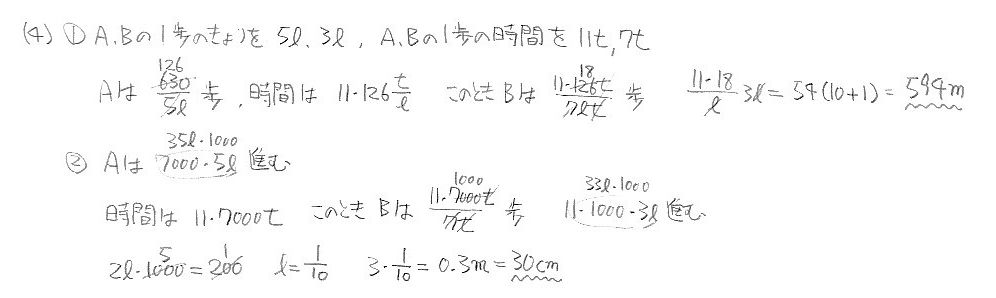 (4) ① A、Bの1歩のきょりを 5l、3l , A、Bの1歩の時間を 11t, 7t
Aは 126 630/5l 歩 , 時間は 11・126 t/l このとき Bは 18 11・126t/7lt 歩 11・18/l 3l = 54(10+1) = 594m
35l・1000
② Aは 7000・5l 進む
時間は 11・7000t このとき Bは 1000 11・7000t/7t 歩 33l・1000 11・1000・3l 進む
2l・1000 5 = 200 1 l = 1/10 3・1/10 = 0.3m = 30cm